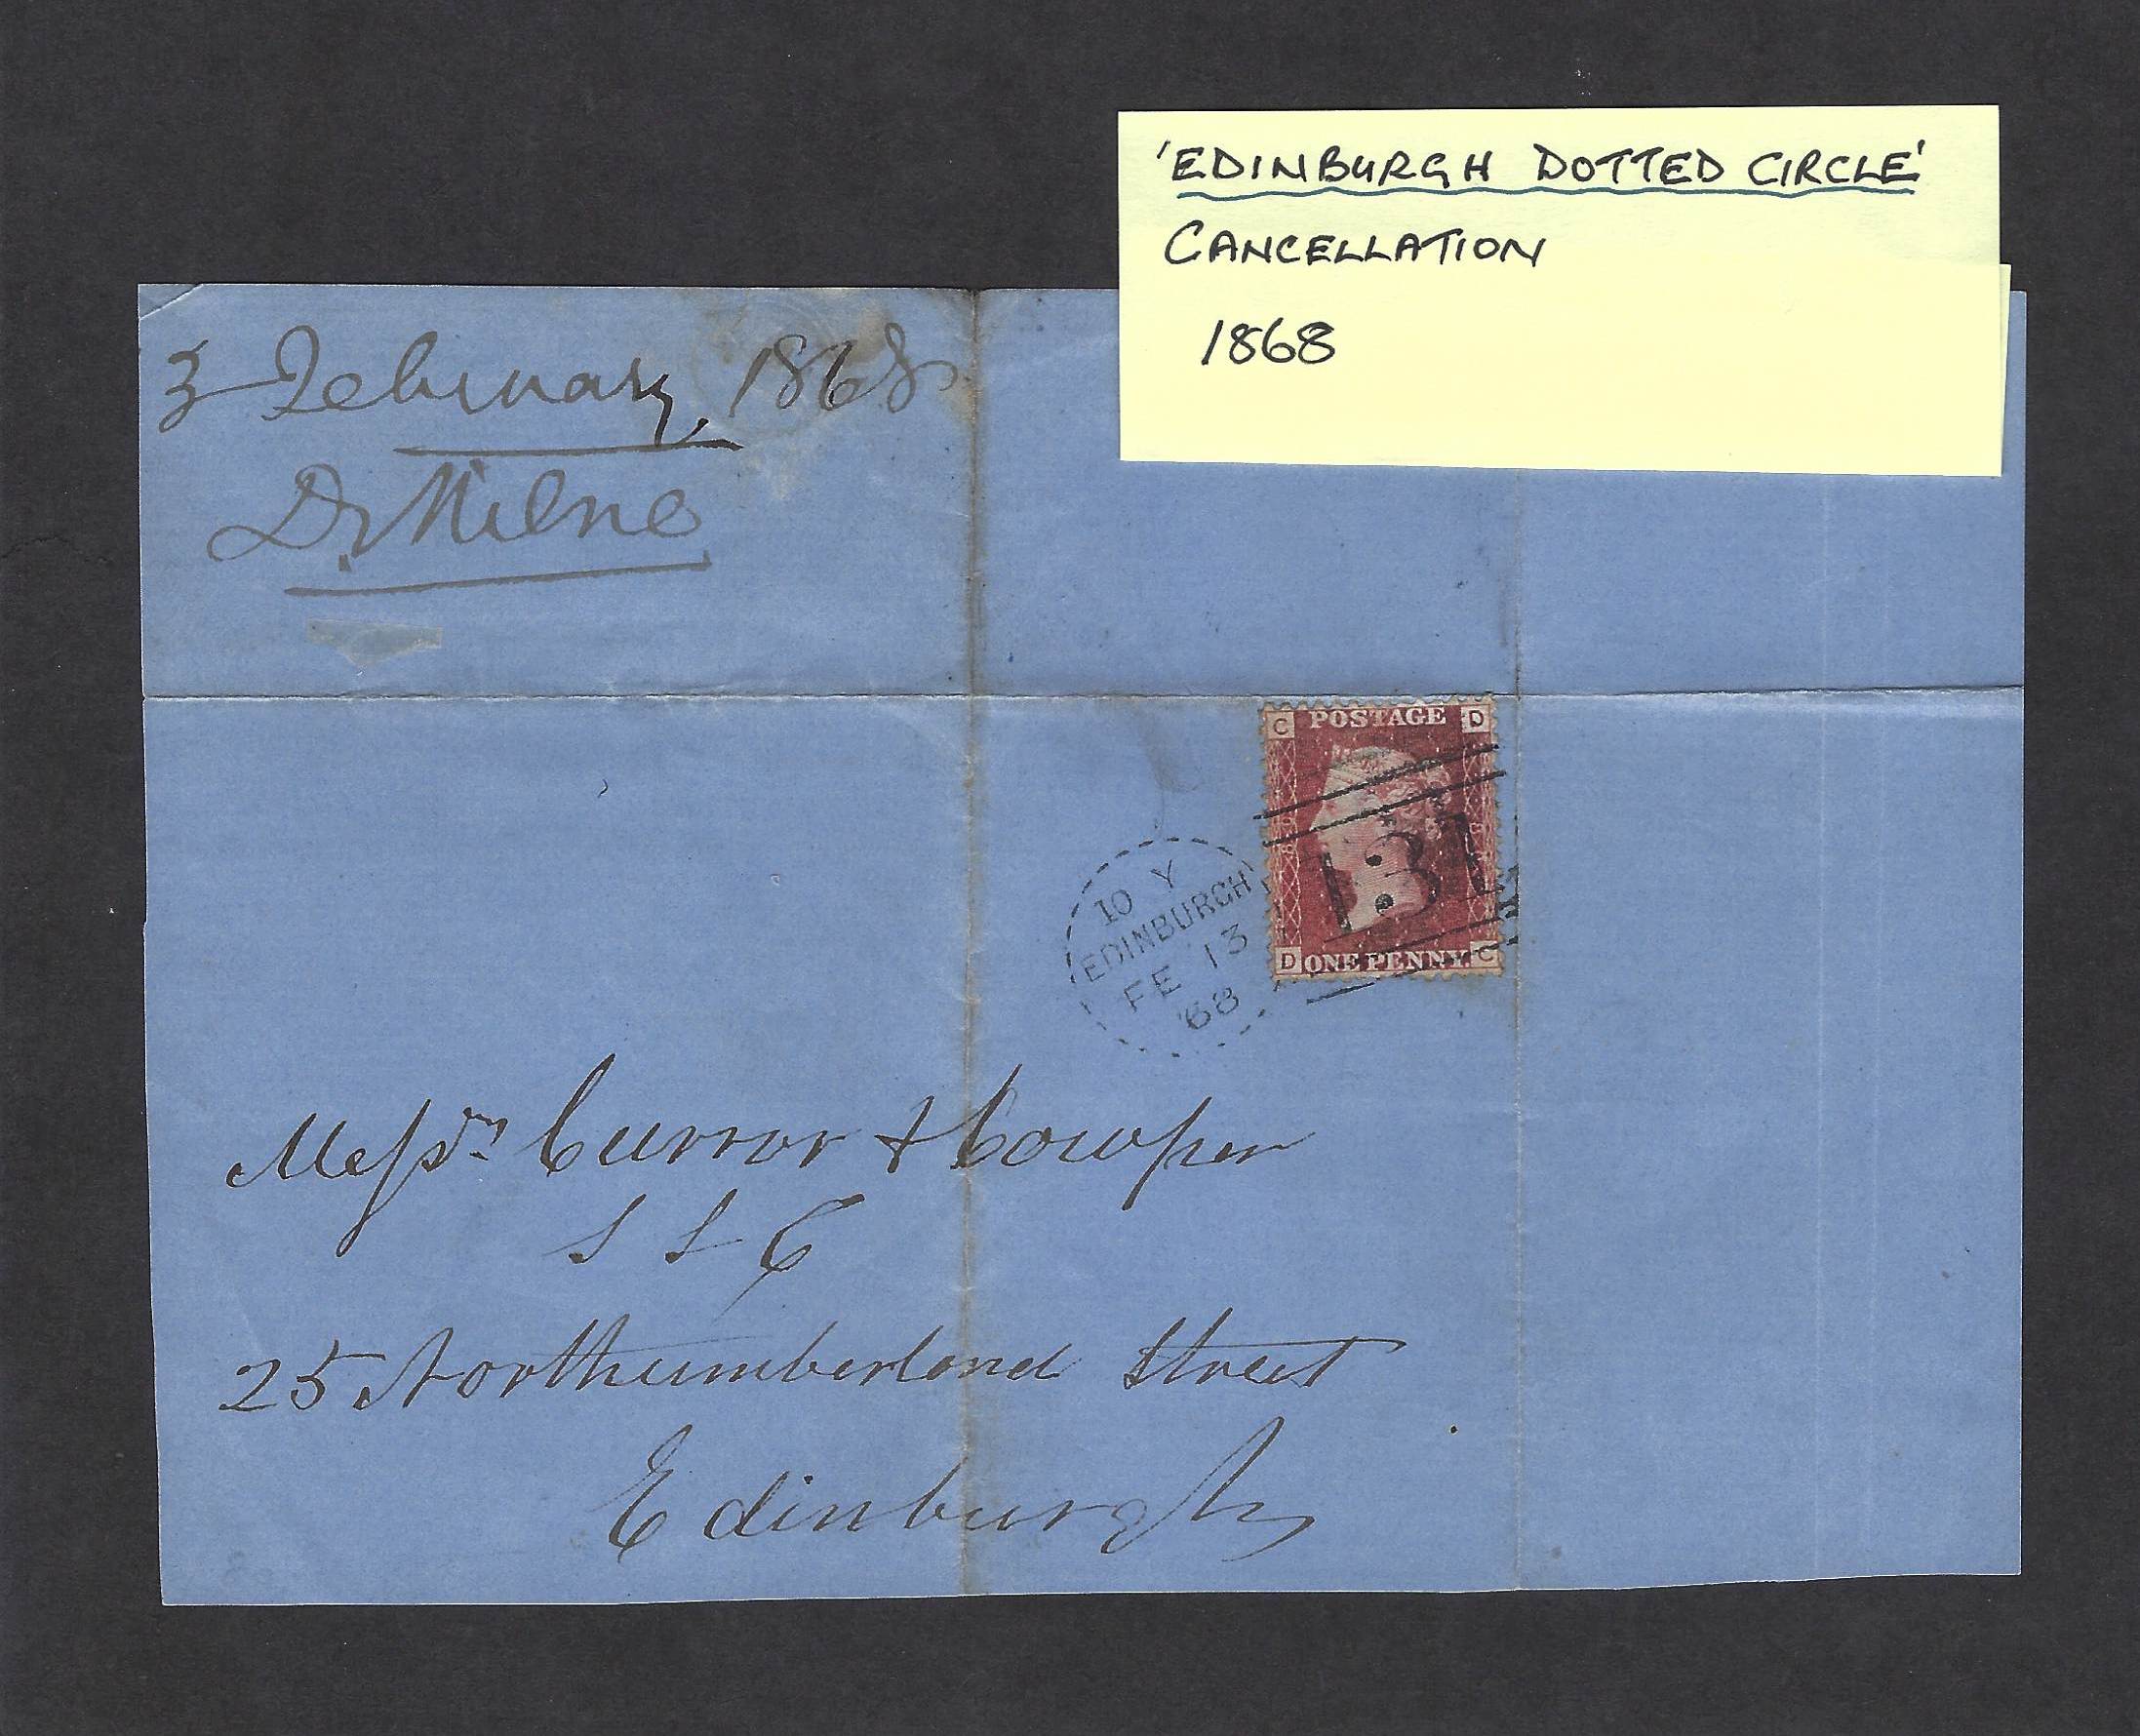 'EDINBURGH DOTTED CIRCLE'
CANCELLATION
1868
3 February, 1868
Dr Milne
C POSTAGE D
131
D ONE PENNY C
10 Y
EDINBURGH
FE 13
68
Messrs Curror & Cowper
S S C
25 Northumberland Street
Edinburgh